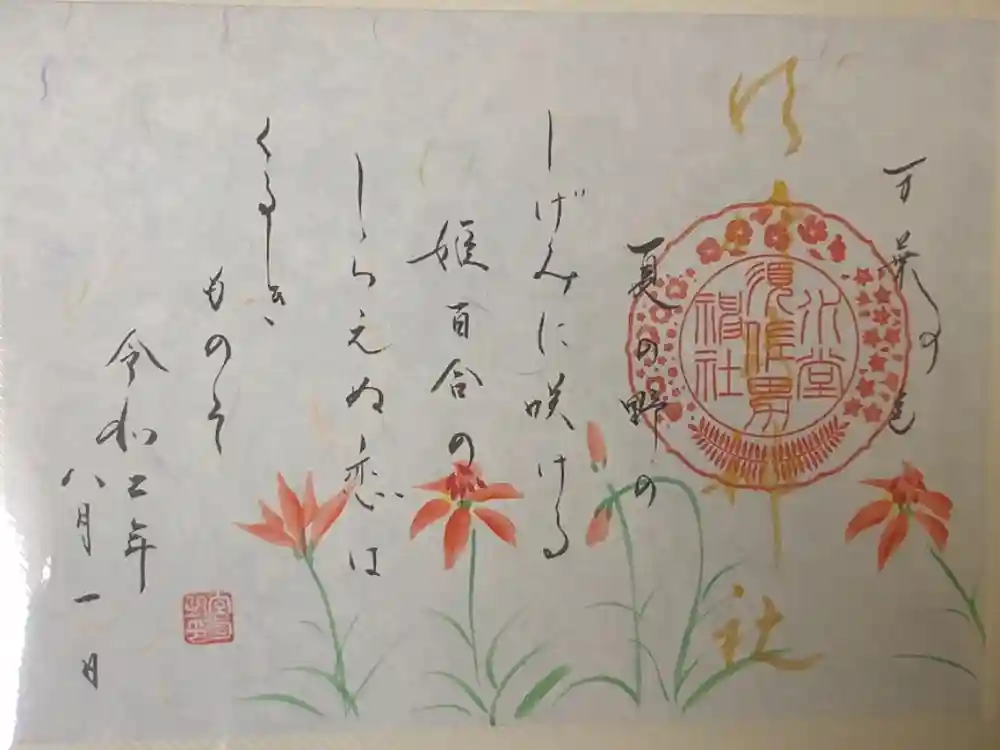 万葉の
水堂
須佐男
神社
夏の野の
しげみに咲ける
姫百合の
しらえぬ恋は
くるしき
ものそ
令和二年
八月一日